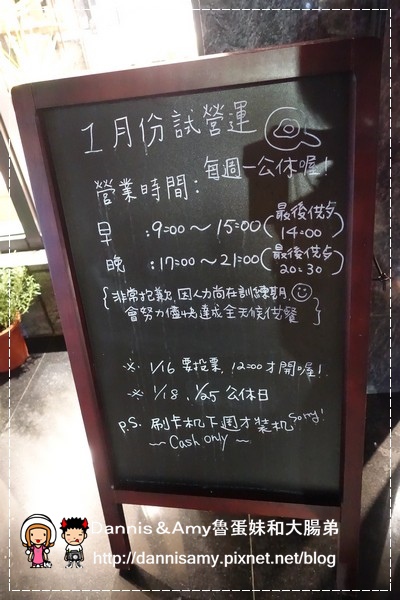 1月份試營運
每週一公休喔!
營業時間:
早 :9:00~15:00(最後供点 14:00)
晚 :17:00~21:00(最後供点 20:30)
{非常抱歉,因人力尚在訓練期,
會努力儘快達成全天候供餐}
※ 1/16 要投票, 12:00才開喔!
※ 1/18、1/25 公休日
P.S. 刷卡机下週才裝机 Sorry!
~ Cash only ~
Dannis & Amy魯蛋妹和大腸弟
http://dannisamy.pixnet.net/blog